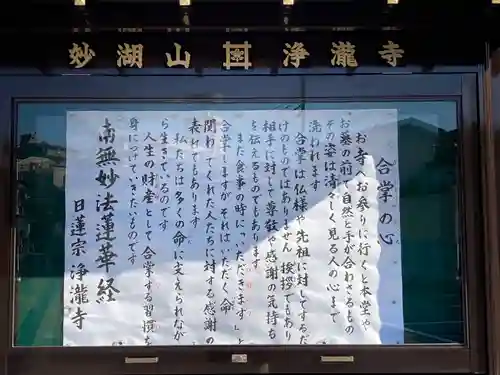 妙湖山 浄瀧寺
合掌の心
お寺へお参りに行くと本堂や
お墓の前で自然と手が合わさるもの
その姿は清々しく見る人の心まで
洗われます
合掌は仏様や先祖に対してするだ
けのものではありません 挨拶でもあり
相手に対して尊敬や感謝の気持ち
を伝えるものでもあります
また食事の時に「いただきます」と
合掌しますがそれはいただく命、
関わってくれた人たちに対する感謝の
表れでもあります
私たちは多くの命に支えられなが
ら生きているのです
人生の財産として合掌する習慣を
身につけていきたいものです
南無妙法蓮華経
日蓮宗 浄瀧寺